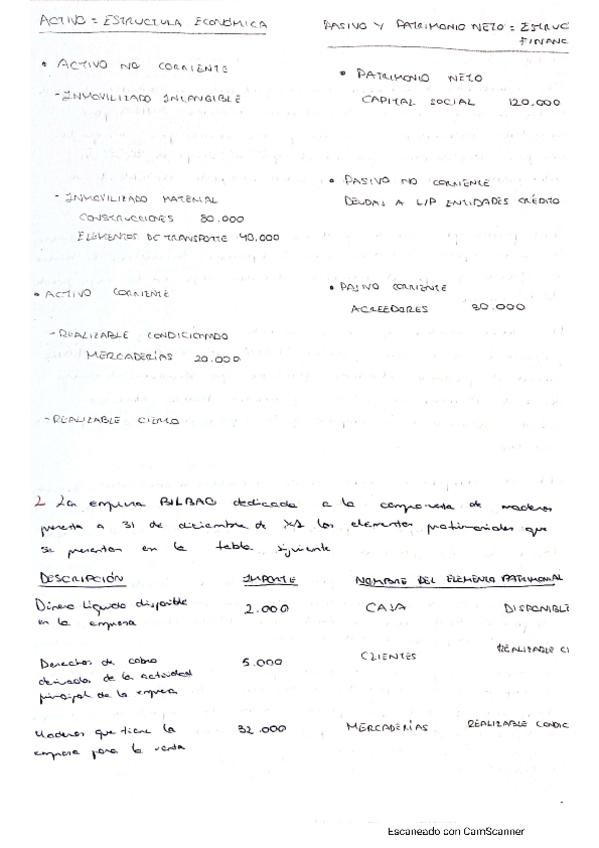 ACTIVO = ESTRUCTURA ECONÓMICA
PASIVO Y PATRIMONIO NETO = ESTRUC
FINANC
• ACTIVO NO CORRIENTE
- INMOVILIZADO INTANGIBLE
• PATRIMONIO NETO
CAPITAL SOCIAL 120.000
- INMOVILIZADO MATERIAL
CONSTRUCCIONES 80.000
ELEMENTOS DE TRANSPORTE 40.000
• PASIVO NO CORRIENTE
DEUDAS A L/P ENTIDADES CRÉDITO
• ACTIVO CORRIENTE
- REALIZABLE CONDICIONADO
MERCADERÍAS 20.000
• PASIVO CORRIENTE
ACREEDORES 20.000
- REALIZABLE CIERTO
2 La empresa BILBAO dedicada a la compraventa de maderas
presenta a 31 de diciembre de X1 los elementos patrimoniales que
se presentan en la tabla siguiente
DESCRIPCIÓN IMPORTE NOMBRE DEL ELEMENTO PATRIMONIAL
Dinero líquido disponible
en la empresa 2.000 CAJA DISPONIBLE
Derechos de cobro
derivados de la actividad
principal de la empresa 5.000 CLIENTES REALIZABLE CI
Maderas que tiene la
empresa para la venta 32.000 MERCADERÍAS REALIZABLE CONDIC
Escaneado con CamScanner